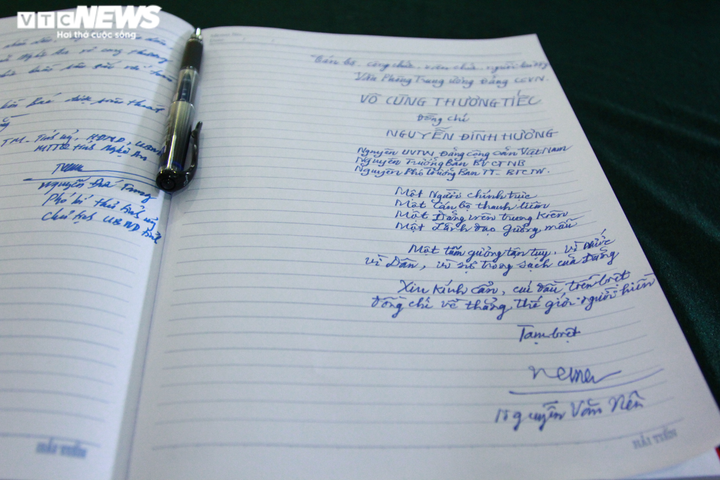 VTC NEWS
Hơi thở cuộc sống
TM. Tỉnh uỷ, HĐND, UBND
MTTQ tỉnh Nghệ An
Nguyễn Đức Trung
Phó bí thư tỉnh uỷ
Chủ tịch UBND tỉnh
HẢI TIẾN
Cán bộ, công chức, viên chức, người lao động
Văn Phòng Trung ương Đảng CSVN.
VÔ CÙNG THƯƠNG TIẾC
Đồng chí
NGUYỄN ĐÌNH HƯƠNG
Nguyên UVTW, Đảng Cộng sản Việt Nam
Nguyên Trưởng Ban BVCTNB
Nguyên Phó Trưởng Ban TT. BTCTW.
Một Người chính trực
Một cán bộ thanh liêm
Một Đảng viên trung kiên
Một Lãnh đạo gương mẫu
Một tấm gương tận tuỵ, vì nước
vì Dân, vì sự trong sạch của Đảng
Xin kính cẩn, cúi đầu, tiễn biệt
Đồng chí về thẳng thế giới người hiền
Tạm biệt
Nguyễn Văn Nên
HẢI TIẾN